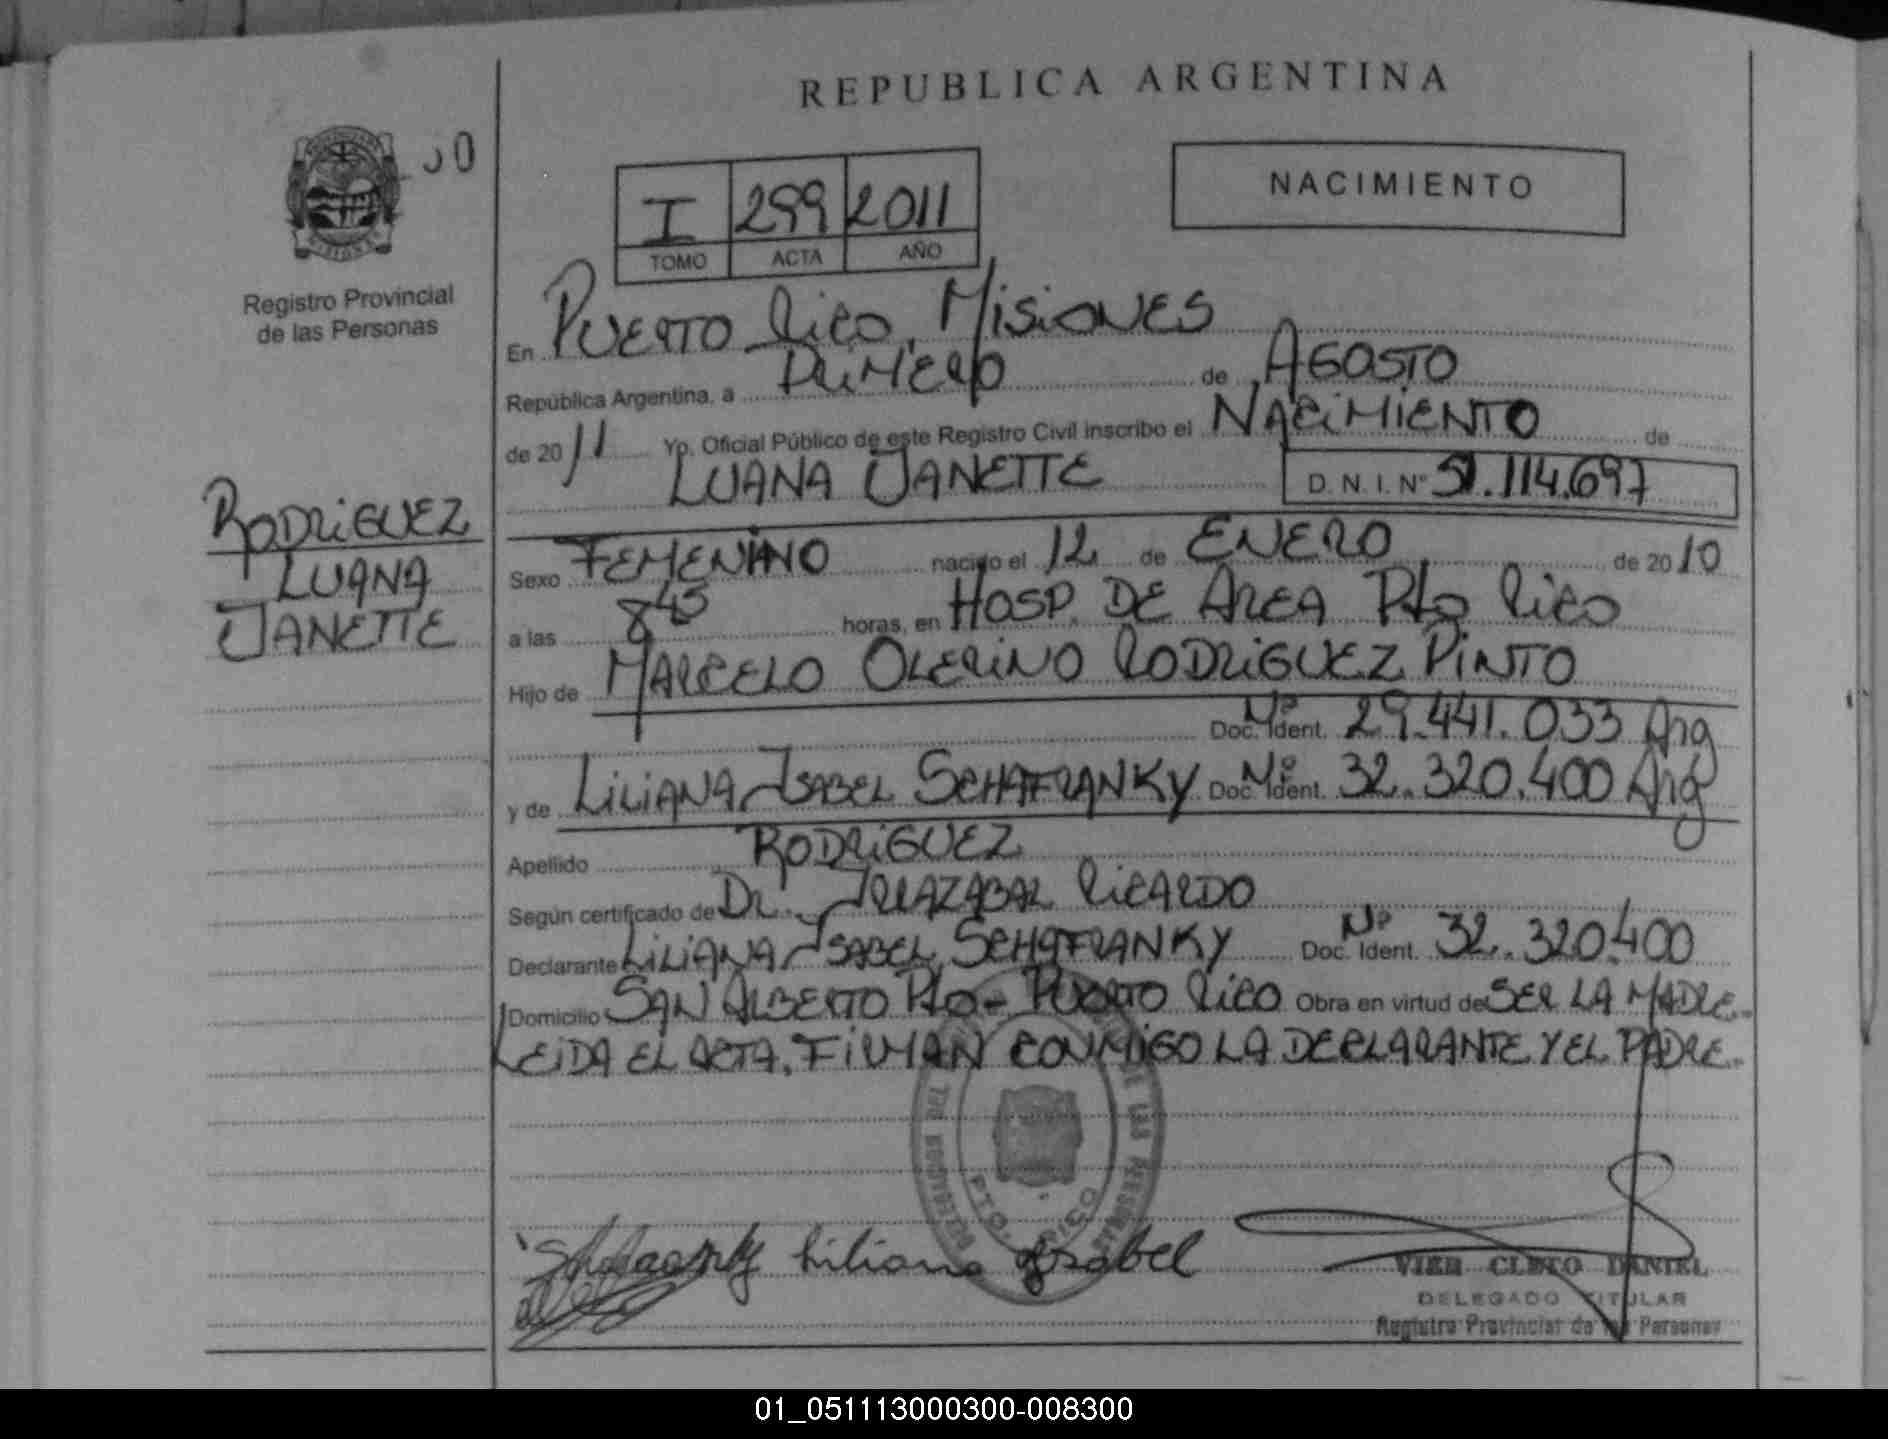 REPUBLICA ARGENTINA
50
Registro Provincial
de las Personas
I 299 2011
TOMO ACTA AÑO
NACIMIENTO
En PUERTO RICO, MISIONES
República Argentina, a PRIMERO de AGOSTO
de 2011 Yo, Oficial Público de este Registro Civil inscribo el NACIMIENTO de
LUANA JANETTE D.N.I. N° 51.114.697
RODRIGUEZ
LUANA
JANETTE
Sexo FEMENINO nacido el 12 de ENERO de 2010
a las 8 45 horas, en HOSP. DE AREA Pto RICO
Hijo de MARCELO OLERINO RODRIGUEZ PINTO
Doc. Ident. N° 29.441.033 Arg
y de LILIANA ISABEL SCHAFRANKY Doc. Ident. N° 32.320.400 Arg
Apellido RODRIGUEZ
Según certificado de DR. IRRAZABAL RICARDO
Declarante LILIANA ISABEL SCHAFRANKY Doc. Ident. N° 32.320.400
Domicilio SAN ALBERTO Pto - PUERTO RICO Obra en virtud de SER LA MADRE.
LEIDA EL ACTA, FIRMAN CONMIGO LA DECLARANTE Y EL PADRE.
PTO. RICO
DE LAS PERSONAS
Schafranky Liliana Ysabel
VIER CLETO DANIEL
DELEGADO TITULAR
Registro Provincial de las Personas
01_051113000300-008300